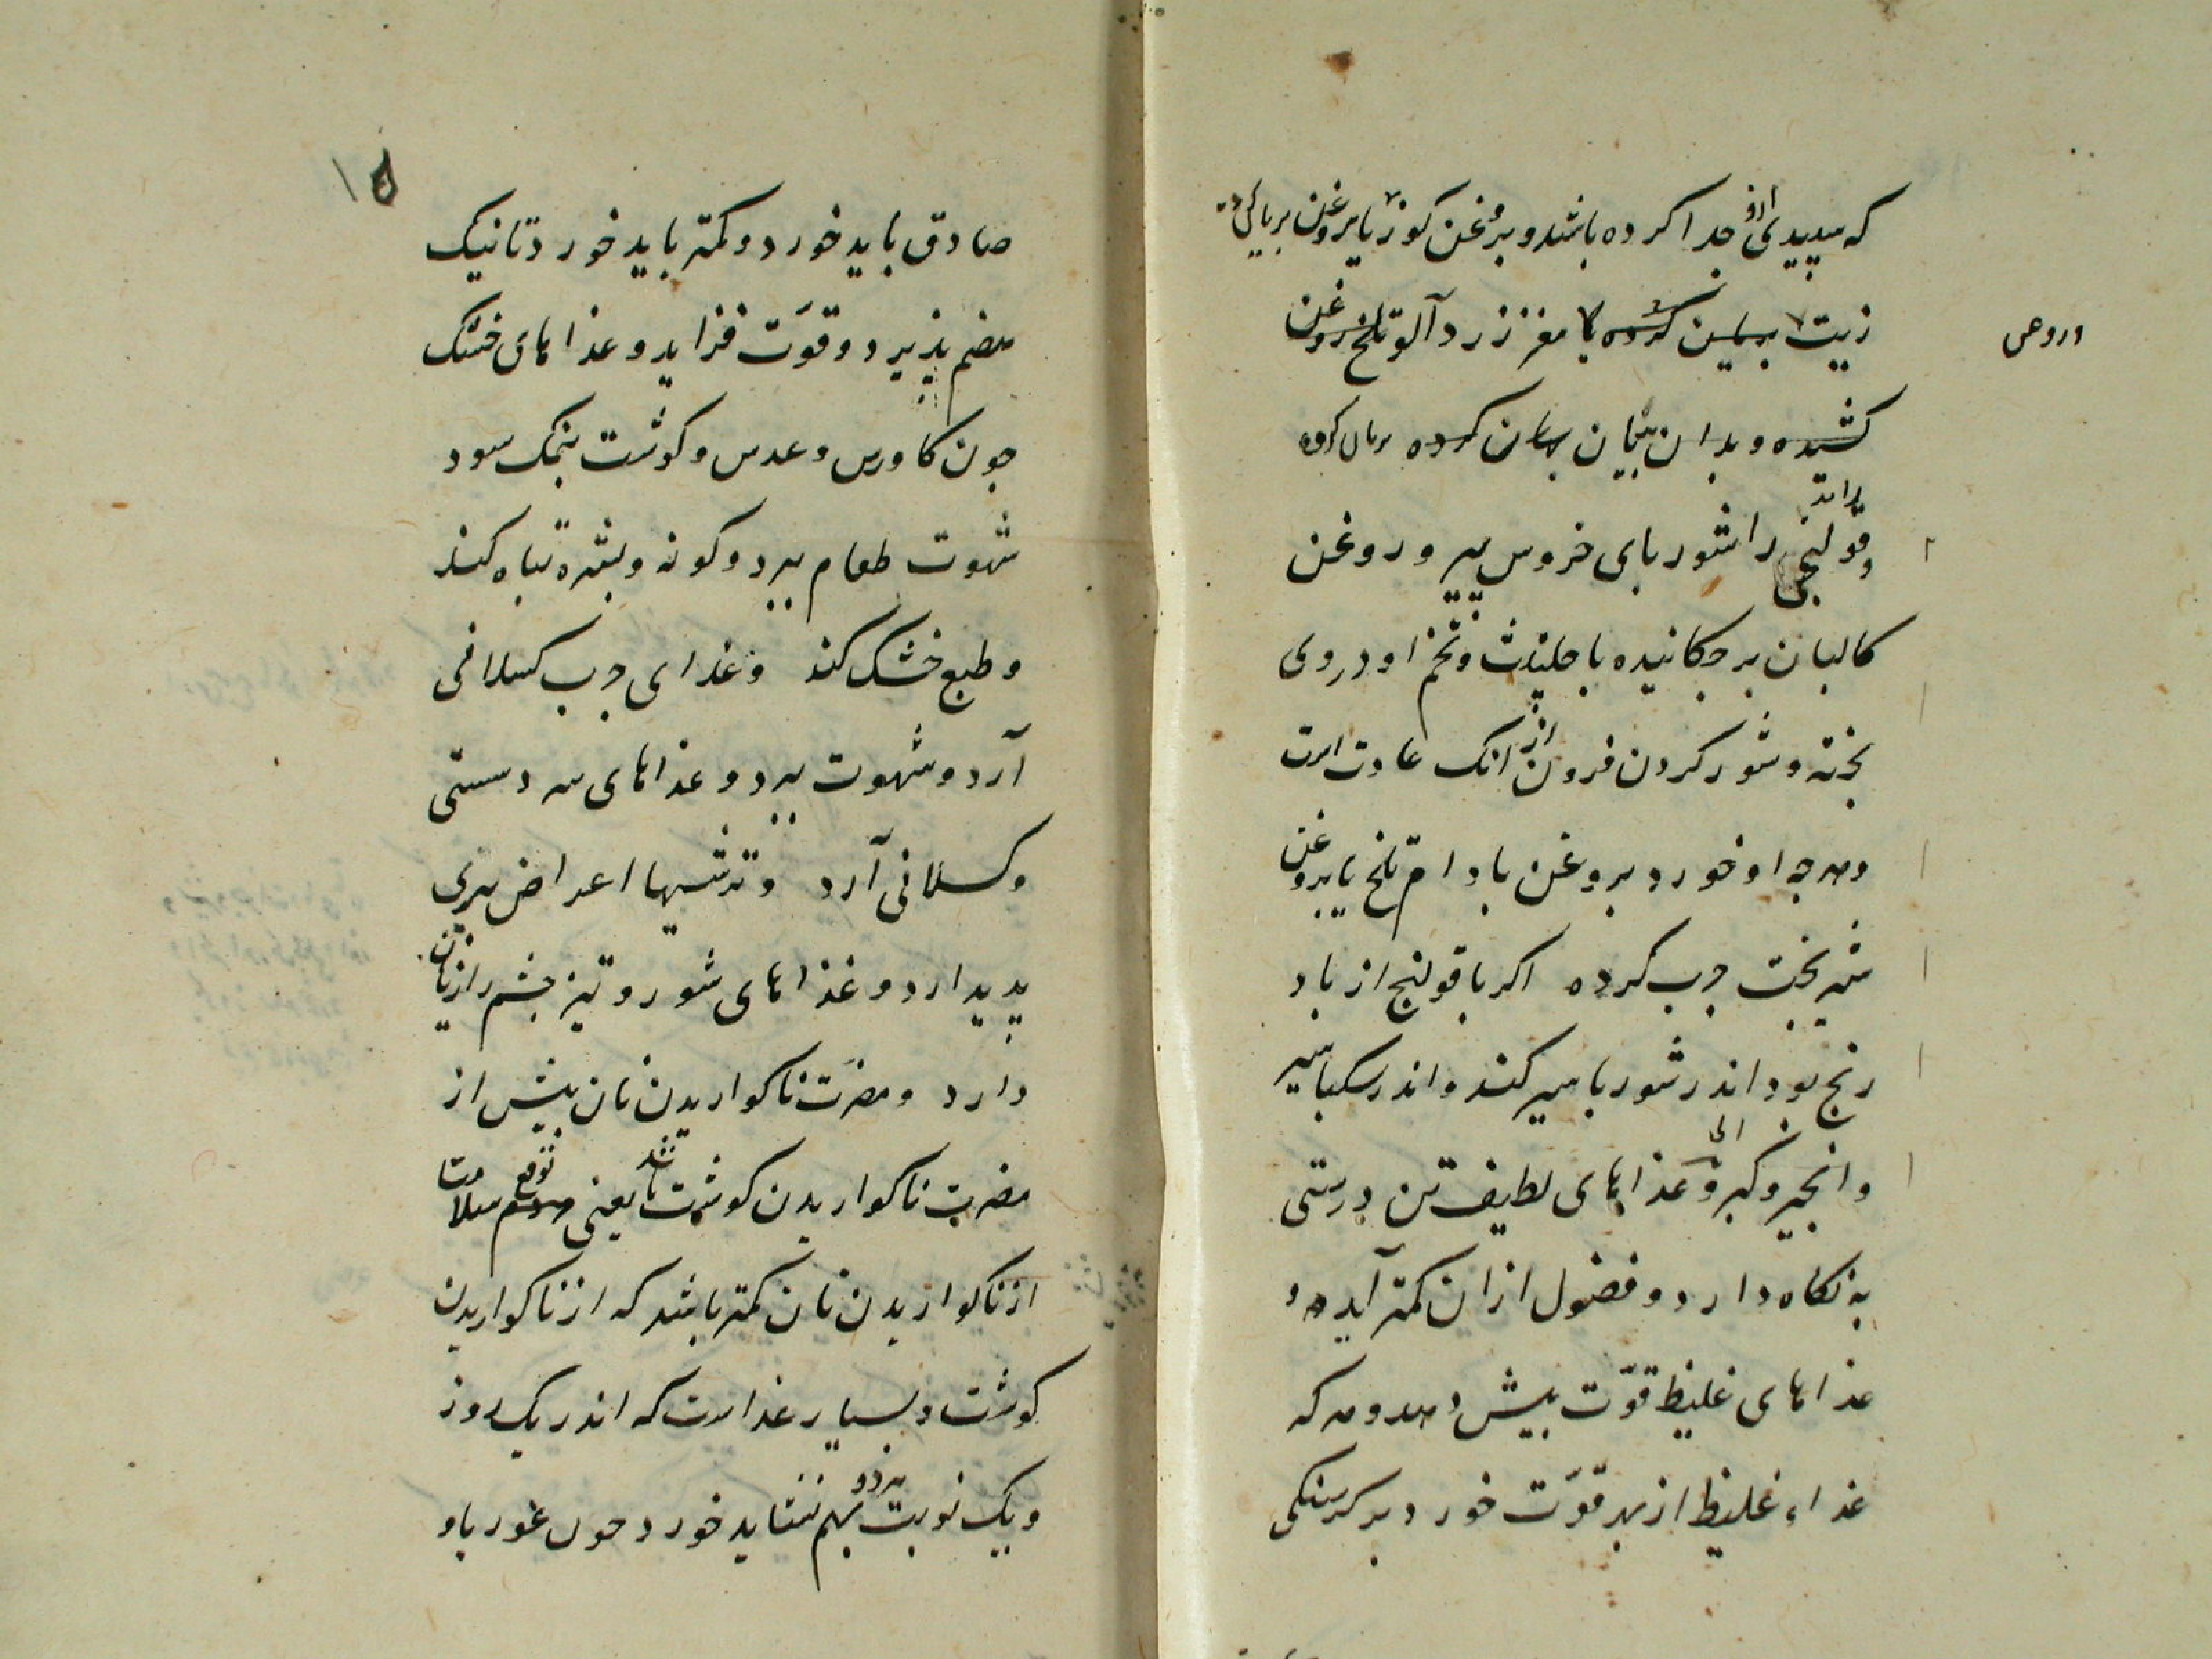 که سپیدی ازو جدا کرده باشد و بروغن کوز یا بروغن
زیت کرده یا مغز زرد آلو تلخ روغن
وروغن
کشیده و بدان بریان کرده بریان کرده
و قولنجی را شوربای خروس پیر و روغن
کالبان برچکانیده با حلتیت و تخم او در وی
پخته و شور کردن فزون از انک عادت است
وهرچه او خورد بروغن بادام تلخ یا بروغن
شیربخت چرب کرده اکر با قولنج از باد
رنج بود اندر شوربا سیر کند و اندر سکبا سیر
وانجیر و کبر و غذاهای لطیف تن درستی
به نکاه دارد و فضول ازان کمتر آید و
غذاهای غلیظ قوّت بیش دهد و هر که
غذاء غلیظ از بهر قوّت خورد بر کرسنکی
۱۵
صادق باید خورد و کمتر باید خورد تا نیک
هضم پذیرد و قوّت فزاید و غذاهای خشک
جون کاورس و عدس و کوشت نمک سود
شهوت طعام ببرد و کونه و بشره تباه کند
و طبع خشک کند و غذای چرب کسلانی
آرد و شهوت ببرد و غذاهای سرد سستی
و کسلانی آرد و ترشیها اعراض پیری
پدید ارد و غذاهای شور و تیز چشم را زیان
دارد و مضرّت ناکواریدن نان بیش از
مضرت ناکواریدن کوشت باشد یعنی توقع سلامت
از ناکواریدن نان کمتر باشد که از ناکواریدن
کوشت و بسیار غذاست که اندر یک روز
و یک نوبت هر دو بهم نشاید خورد جون غوربا و